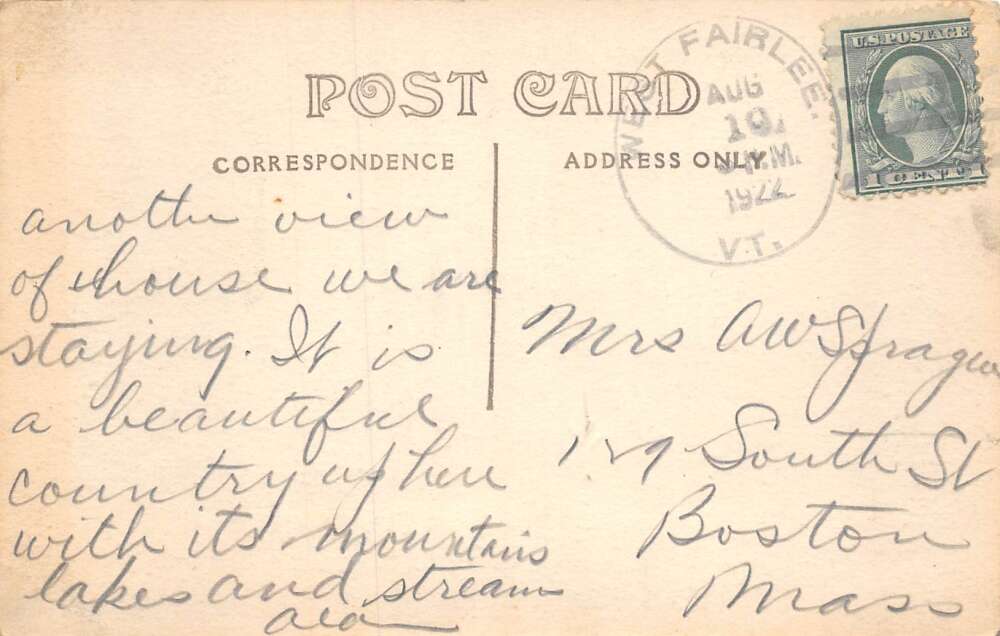 POST CARD
CORRESPONDENCE
ADDRESS ONLY
WEST FAIRLEE.
AUG
10
M.
1922
VT.
U.S. POSTAGE
1 CENT 1
another view
of house we are
staying. It is
a beautiful
country up here
with its mountains
lakes and stream
Mrs A W Sprague
129 South St
Boston
Mass